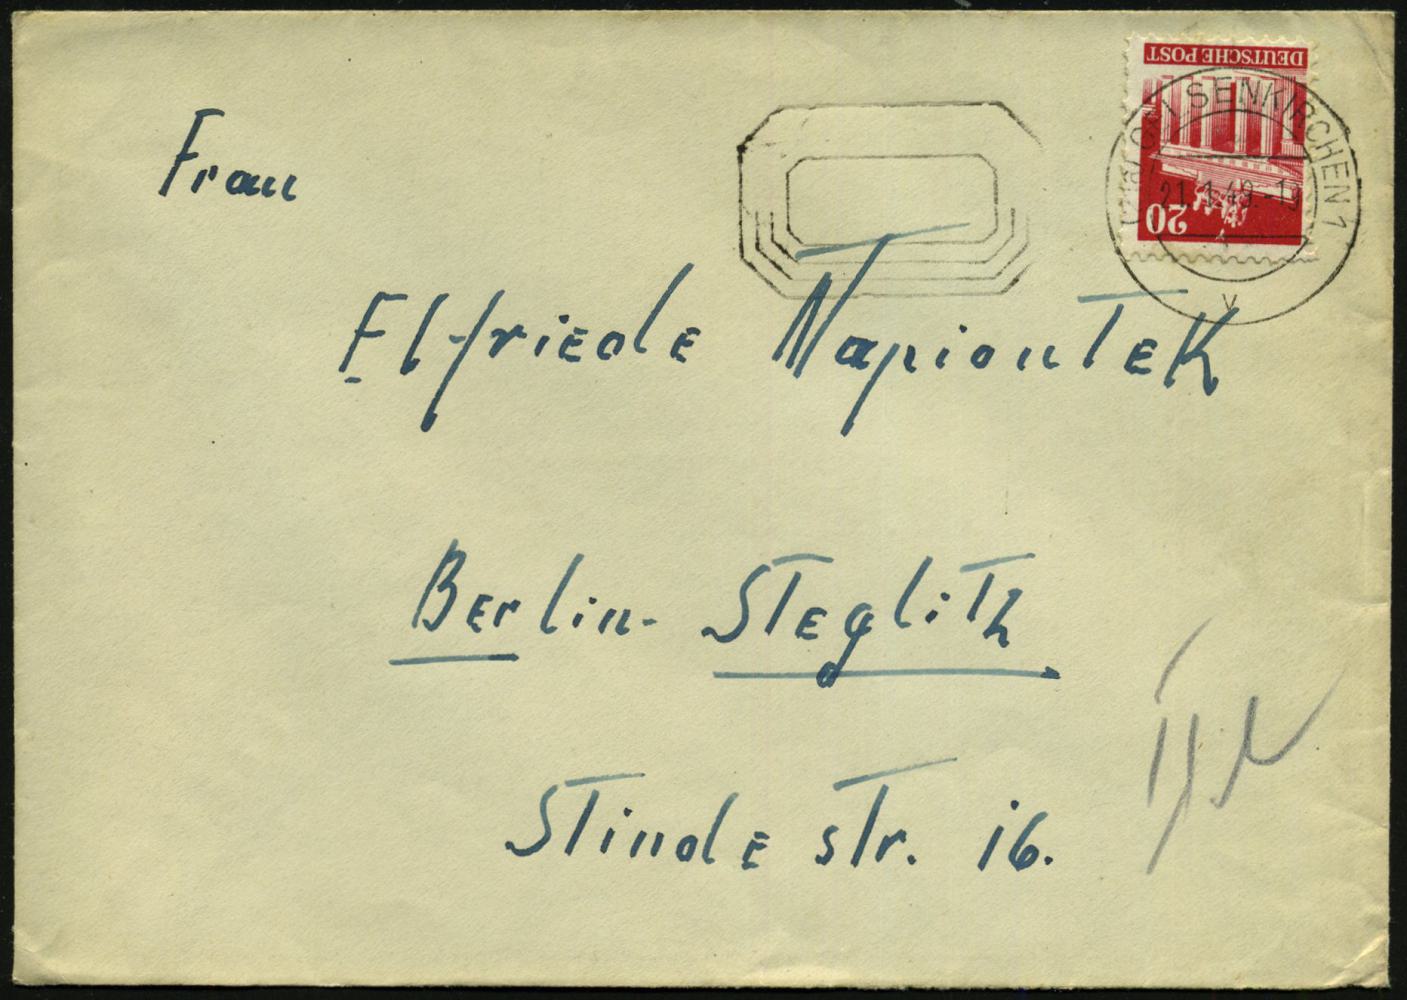 DEUTSCHE POST
20
GELSENKIRCHEN 1
21.1.49.-19
v
Frau
Elfriede Napiontek
Berlin-Steglitz
Stindestr. 16.